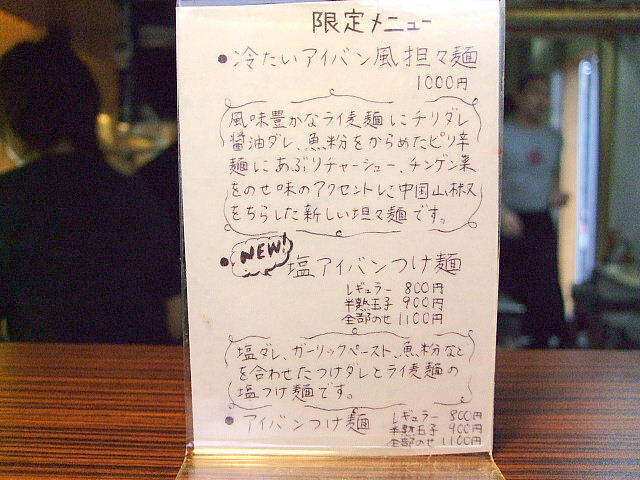 限定メニュー
● 冷たいアイバン風担々麺
1000円
風味豊かなライ麦麺にチリダレ
醤油ダレ、魚粉をからめたピリ辛
麺にあぶりチャーシュー、チンゲン菜
をのせ味のアクセントに中国山椒
をちらした新しい坦々麺です。
● NEW! 塩アイバンつけ麺
レギュラー 800円
半熟玉子 900円
全部のせ 1100円
塩ダレ、ガーリックペースト、魚粉など
を合わせたつけダレとライ麦麺の
塩つけ麺です。
● アイバンつけ麺 レギュラー 800円
半熟玉子 900円
全部のせ 1100円